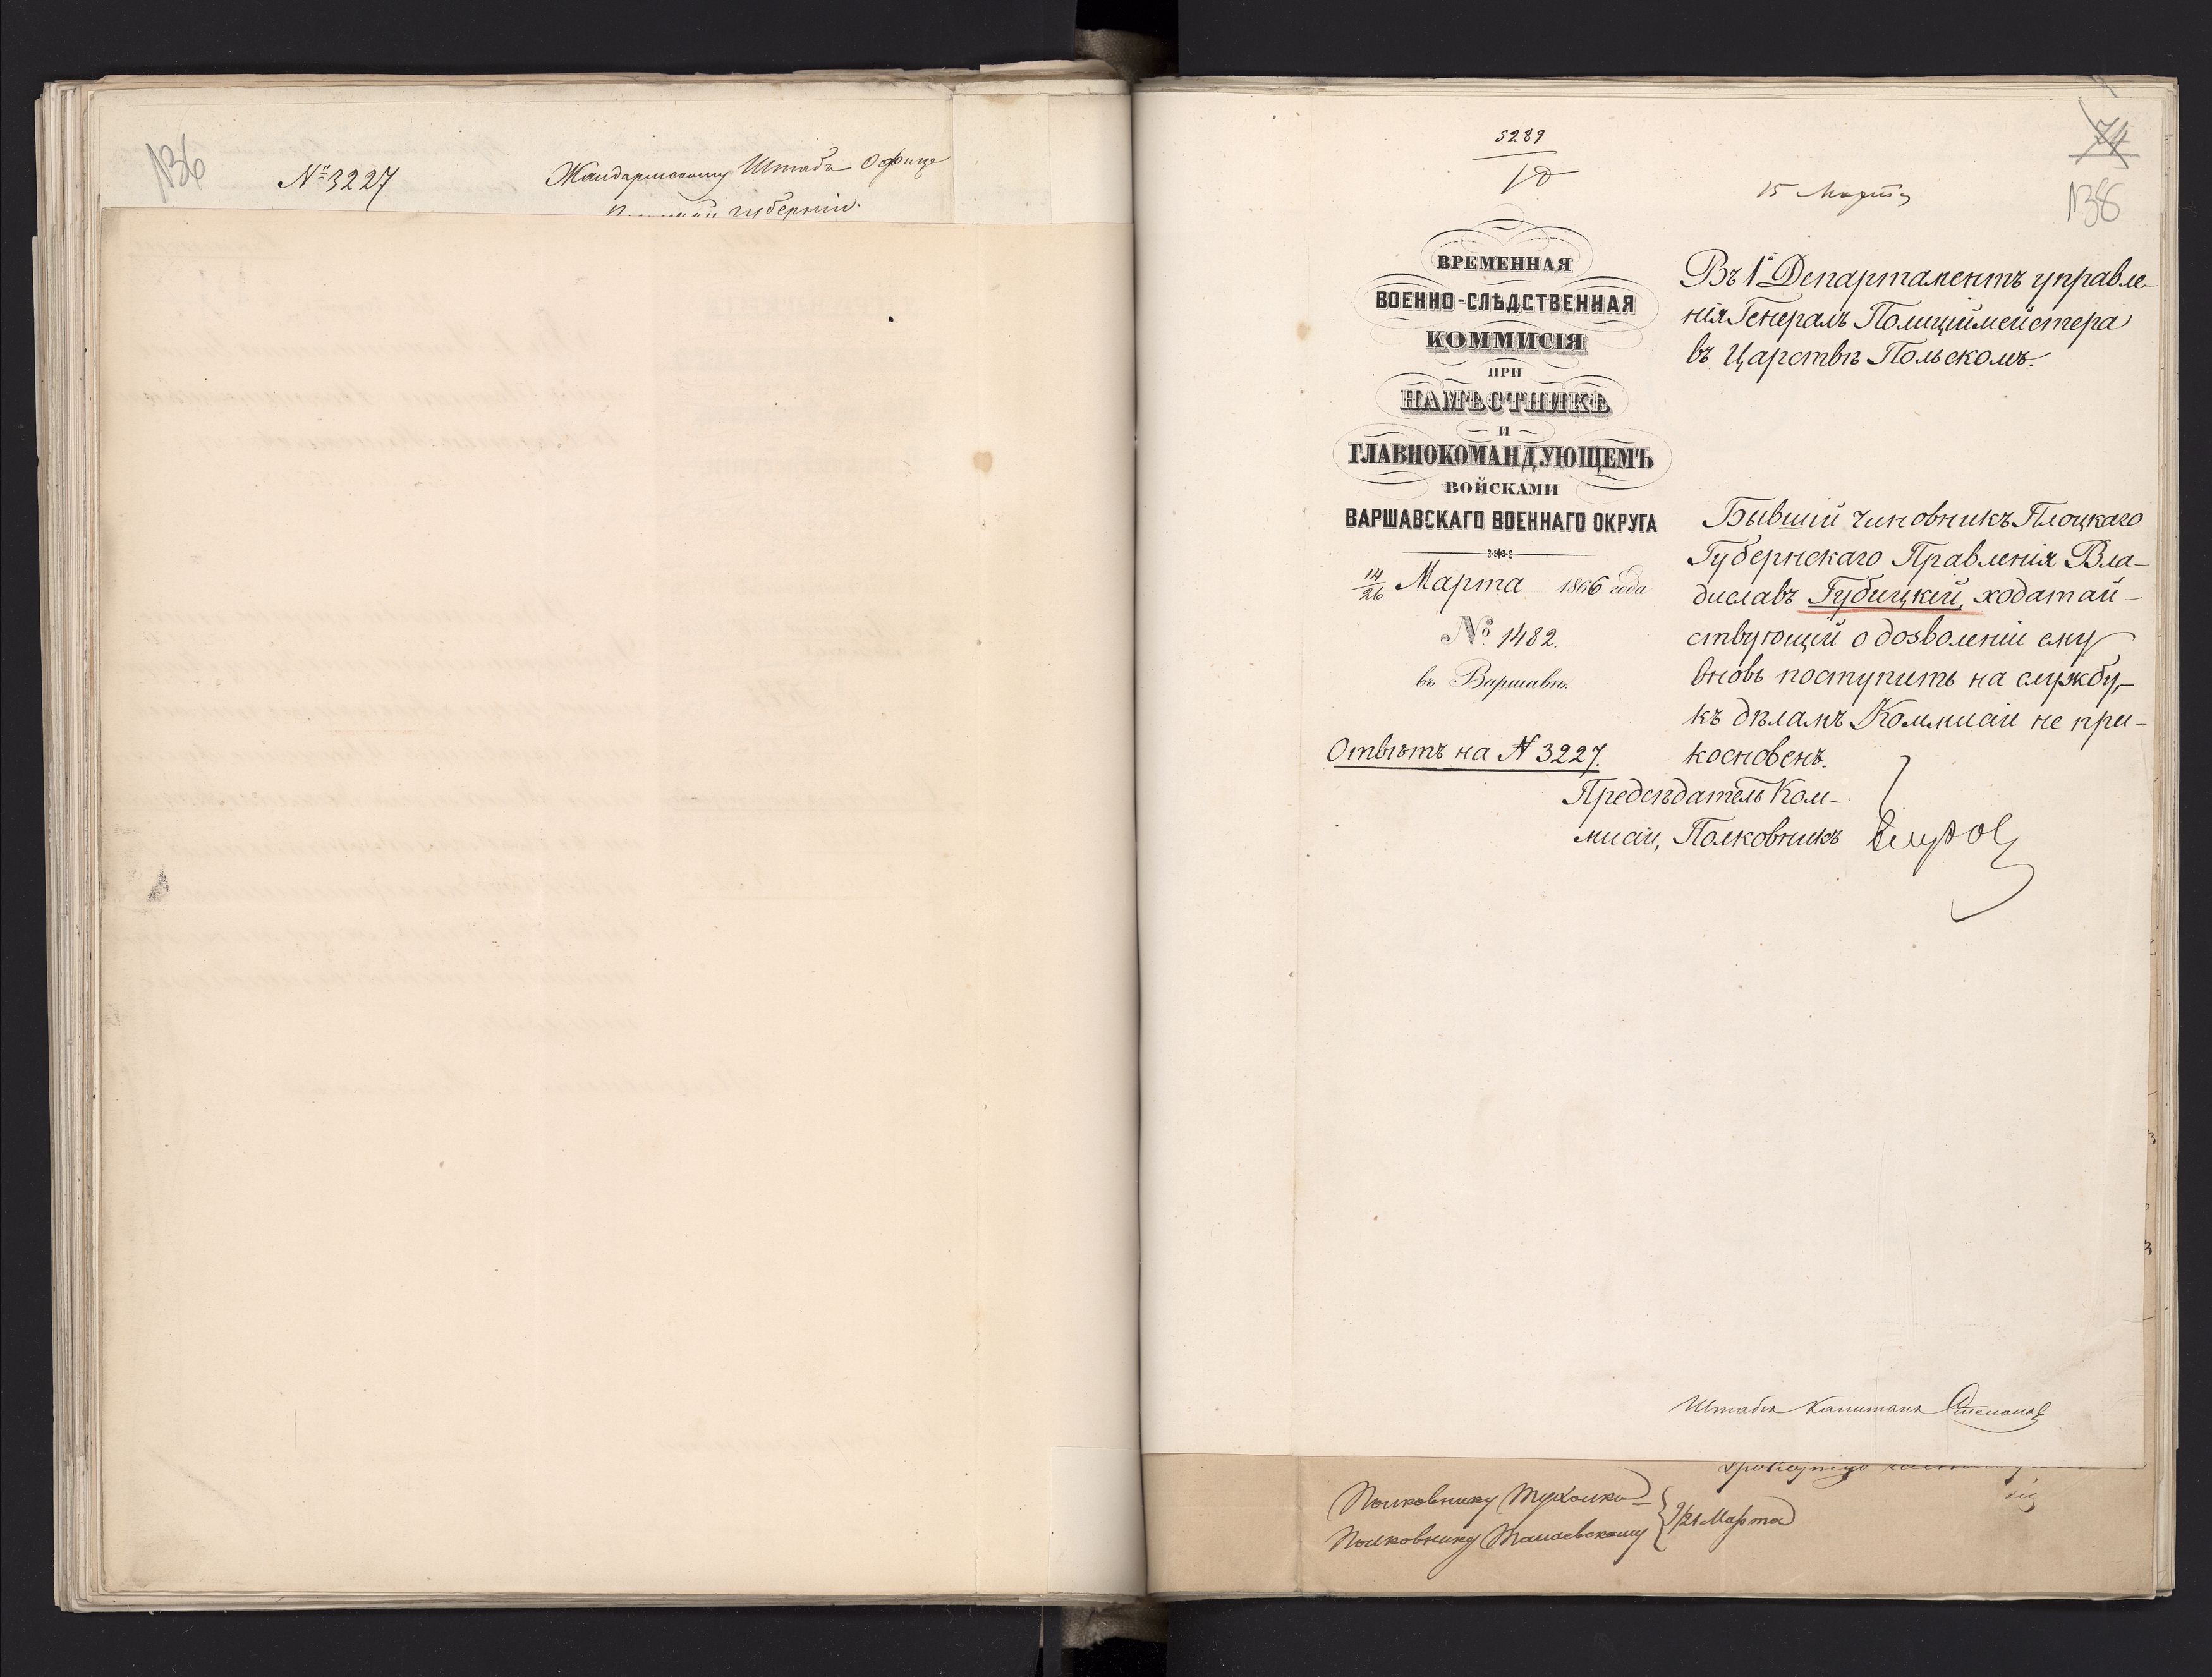 136
№ 3227
Жандармскому Штабъ Офице
губерніи.
5289
74
138
15 Марта
ВРЕМЕННАЯ
ВОЕННО-СЛѢДСТВЕННАЯ
КОММИСІЯ
ПРИ
НАМѢСТНИКѢ
И
ГЛАВНОКОМАНДУЮЩЕМЪ
ВОЙСКАМИ
ВАРШАВСКАГО ВОЕННАГО ОКРУГА
14/26 Марта 1866 года
№ 1482.
въ Варшавѣ.
Отвѣтъ на № 3227.
Въ 1й Департаментъ управле-
нія Генералъ Полиціймейстера
въ Царствѣ Польскомъ.
Бывшій чиновникъ Плоцкаго
Губернскаго Правленія Вла-
диславъ Губицкій, ходатай-
ствующій о дозволеніи ему
вновь поступить на службу,-
къ дѣламъ Коммисіи не при-
косновенъ.
Предсѣдатель Ком-
мисіи, Полковникъ
Штабсъ Капитанъ
Полковнику
Полковнику
9/21 Марта